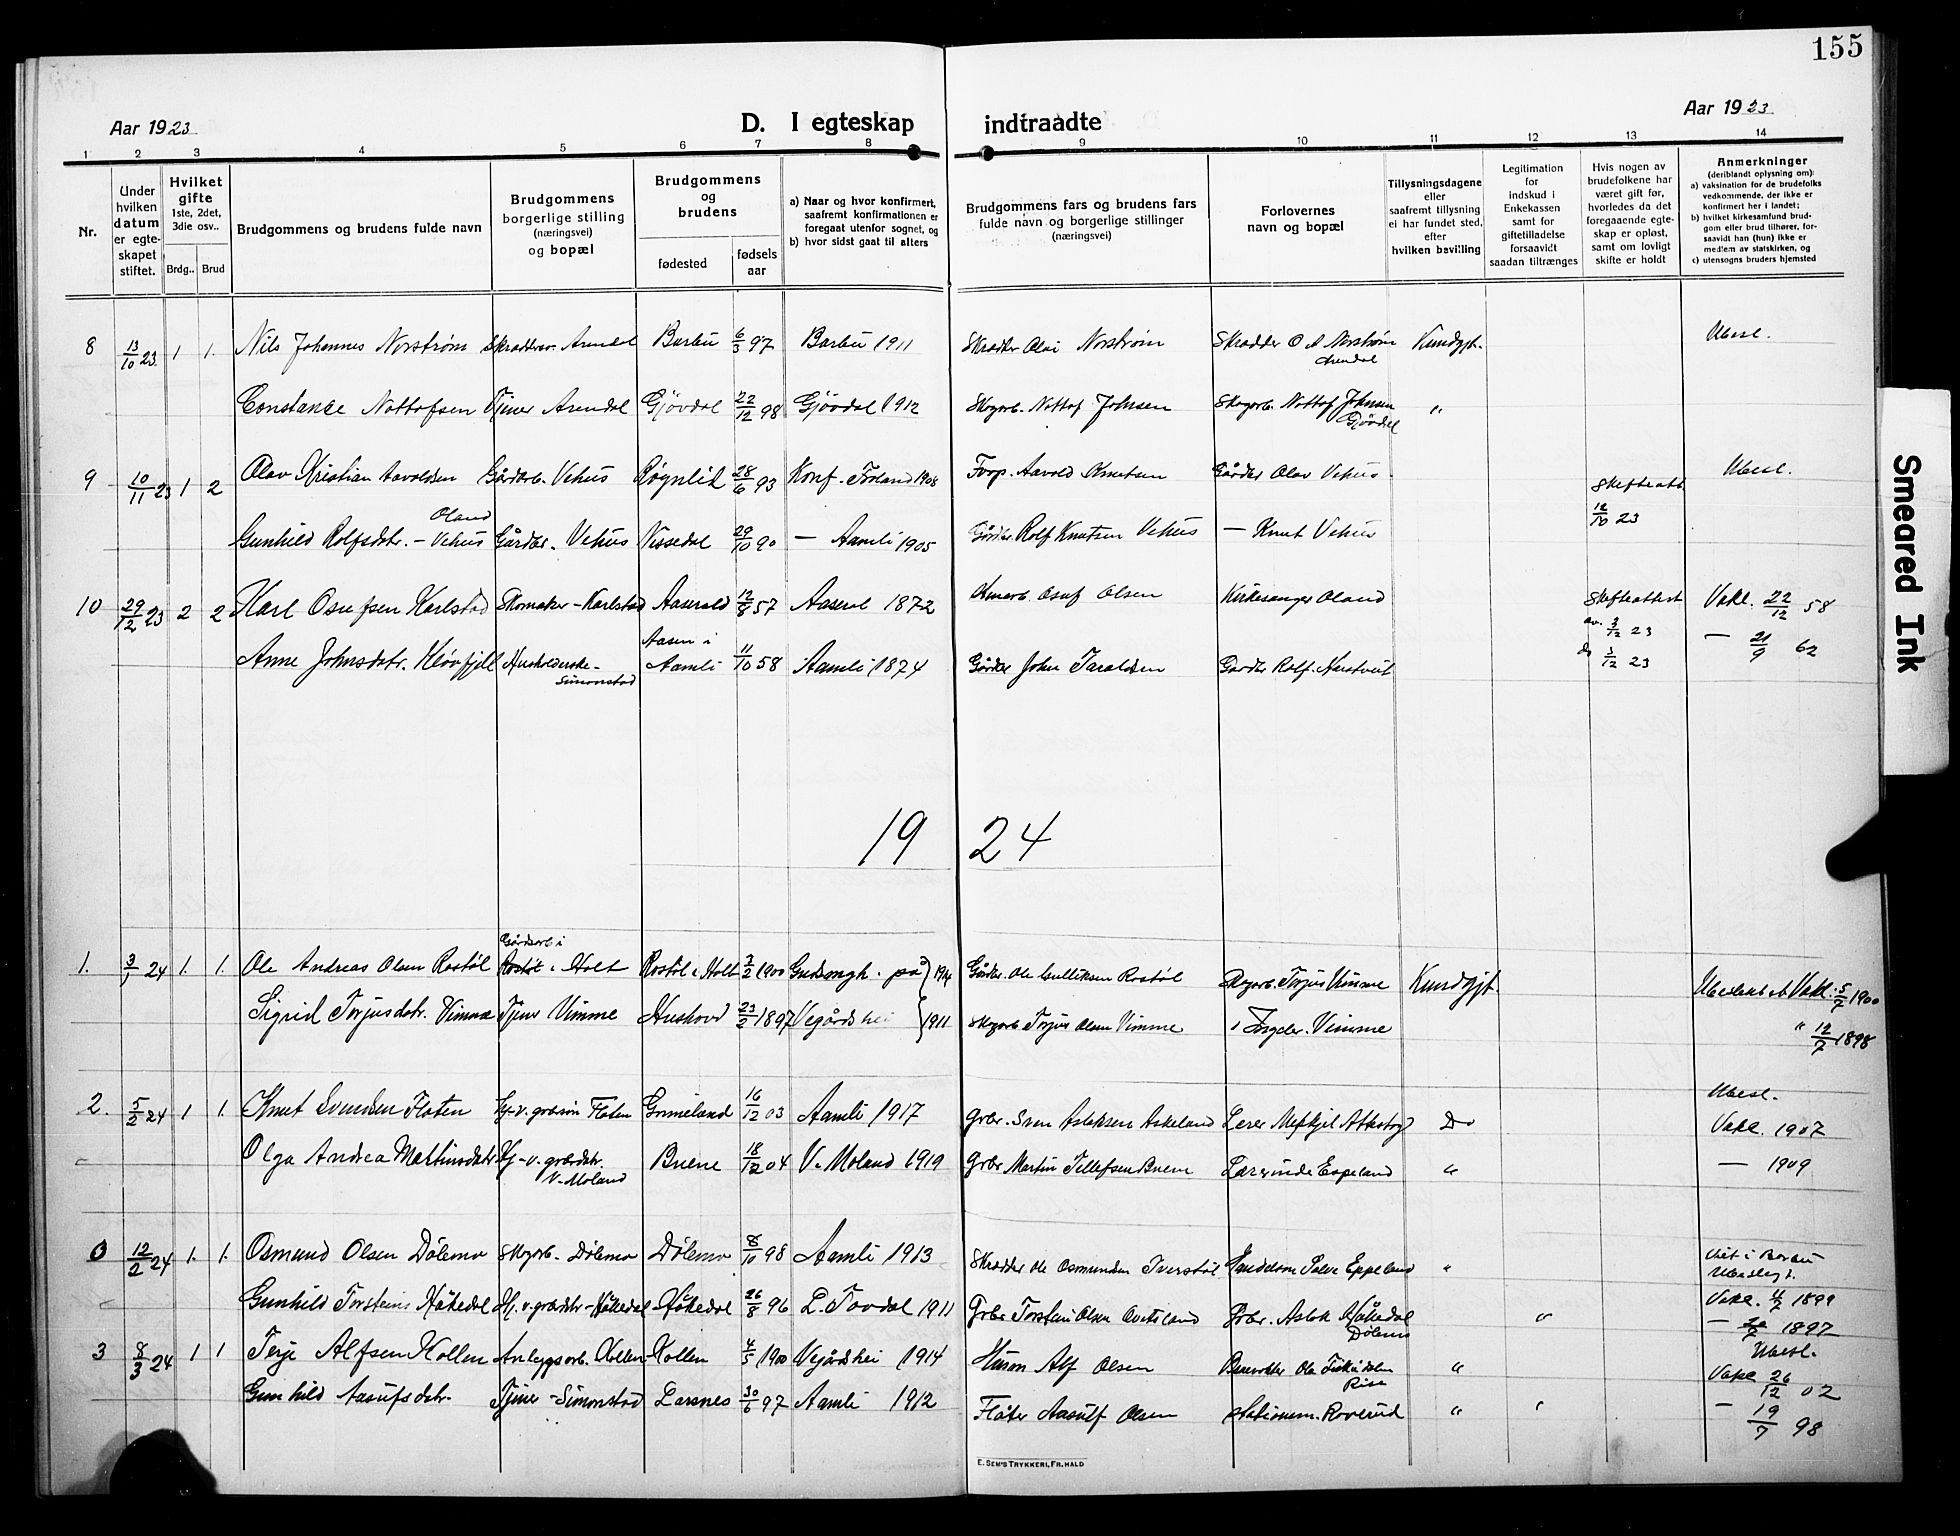 155
Aar 1923
D. I egteskap indtraadte
Aar 1923
1 2 3 4 5 6 7 8 9 10 11 12 13 14
Nr.
Under hvilken datum er egteskapet stiftet.
Hvilket gifte
1ste, 2det, 3die osv..
Brdg.. Brud
Brudgommens og brudens fulde navn
Brudgommens borgerlige stilling (næringsvei) og bopæl
Brudgommens og brudens
fødested
fødselsaar
a) Naar og hvor konfirmert, saafremt konfirmationen er foregaat utenfor sognet, og
b) hvor sidst gaat til alters
Brudgommens fars og brudens fars fulde navn og borgerlige stillinger (næringsvei)
Forlovernes navn og bopæl
Tillysningsdagene eller saafremt tillysning ei har fundet sted, efter hvilken bevilling
Legitimation for indskud i Enkekassen samt for giftetilladelse forsaavidt saadan tiltrænges
Hvis nogen av brudefolkene har været gift før, hvorledes da det foregaaende egteskap er opløst, samt om lovligt skifte er holdt
Anmerkninger
(deriblandt oplysning om):
a) vaksination for de brudefolks vedkommende, der ikke er konfirmert her i landet;
b) hvilket kirkesamfund brudgom eller brud tilhører, forsaavidt han (hun) ikke er medlem av statskirken, og
c) utensogns bruders hjemsted
8 13/10 23 1 1. Nils Johannes Norstrøm Skræddersv. Arendal Barbu 6/3 97 Barbu 1911 Skrædder Olai Norstrøm Skrædder O A Norstrøm Arendal Kundgjt. Ubesl.
Constance Nottofsen Tjener Arendal Gjövdal 22/12 98 Gjövdal 1912 Skogarb. Nottof Johnsen Skogarb. Nottof Johnsen Gjövdal "
9 10/11 23 1 2 Olav Kristian Aavoldsen Gårdarb. Vehus Røgnlid 28/6 93 Konf. Froland 1908 Forp. Aavold Knutsen Gårdbr Olav Vehus Skifteatt. 12/10 23 Ubesl.
Gunhild Rolfsdtr. Oland - Vehus Gårdbr. Vehus Nissedal 29/10 90 — Aamli 1905 Gårdbr. Rolf Knutsen Vehus — Knut Vehus
10 29/12 23 2 2 Karl Osufsen Karlstad Skomaker - Karlstad Aaseral 12/8 57 Aaseral 1872 Osuf Olsen Kirkesanger Oland Skifteattest av. 3/12 23 Vakc. 22/12 58
Anne Johnsdtr. Kløvfjell Husholderske - Simonstad Aasen i Aamli 11/10 58 Aamli 1874 Gårdbr John Taraldsen Gårdbr Rolf Do 3/12 23 — 21/9 62
19 24
1. 3/1 24 1. 1. Ole Andreas Olsen Rostøl Gårdsarb i Rostøl i Holt Rostøl i Holt 7/2 1900 Gudsmgh. på 1914 Gårdbr. Ole Gulliksen Rostøl Skogarb. Torjus Vimme Kundgjt. Vakc. 5/7 1900
Sigrid Torjusdtr. Vimme Tjener Vimme Hushovd 23/2 1897 Vegårdshei 1911 Skogarb Torjus Olsen Vimme Vimme " 12/7 1898
2. 5/2 24 1 1. Knut Svendsen Flaten Hj. v. gbrsøn Flaten Grimeland 16/12 03 Aamli 1917 Gbr. Sven Aslaksen Askeland Lærer Do Ubesl. Vakc. 1907
Olga Andrea Martinsdatter Hj. v. gbrdtr. V. Moland Buene 18/12 04 V. Moland 1919 Gbr Martin Tellefsen Buene Lærerinde Espeland " — 1909
0 12/2 24 1. 1. Osmund Olsen Dölemo Skogarb. Dölemo Dölemo 8/10 98 Aamli 1913 Skrædder Ole Osmundsen Tverstøl Salve Eppeland " Viet i Barbu
Gunhild Torsteins Håkedal Hj. v. gbrdtr - Håkedal Håkedal 26/8 96 L. Tovdal 1911 Gbr Torstein Olsen Gbr. Aslak Håkedal Dölemo " Vakc. 1899 — 1897
3 8/3 24 1 1 Terje Alfsen Kollen Anleggsarb. Kollen Kollen 4/5 1900 Vegårdshei 1914 Husm Alf Olsen Rise " Ubesl. Vakc 26/12 02
Gunhild Aasufsdtr. Tjener - Simonstad Larsnes 30/6 97 Aamli 1912 Fløter Aasulf Olsen Stationsm. Roverud " " — 19/7 98
E. SEM'S TRYKKERI, FR. HALD
Smeared Ink